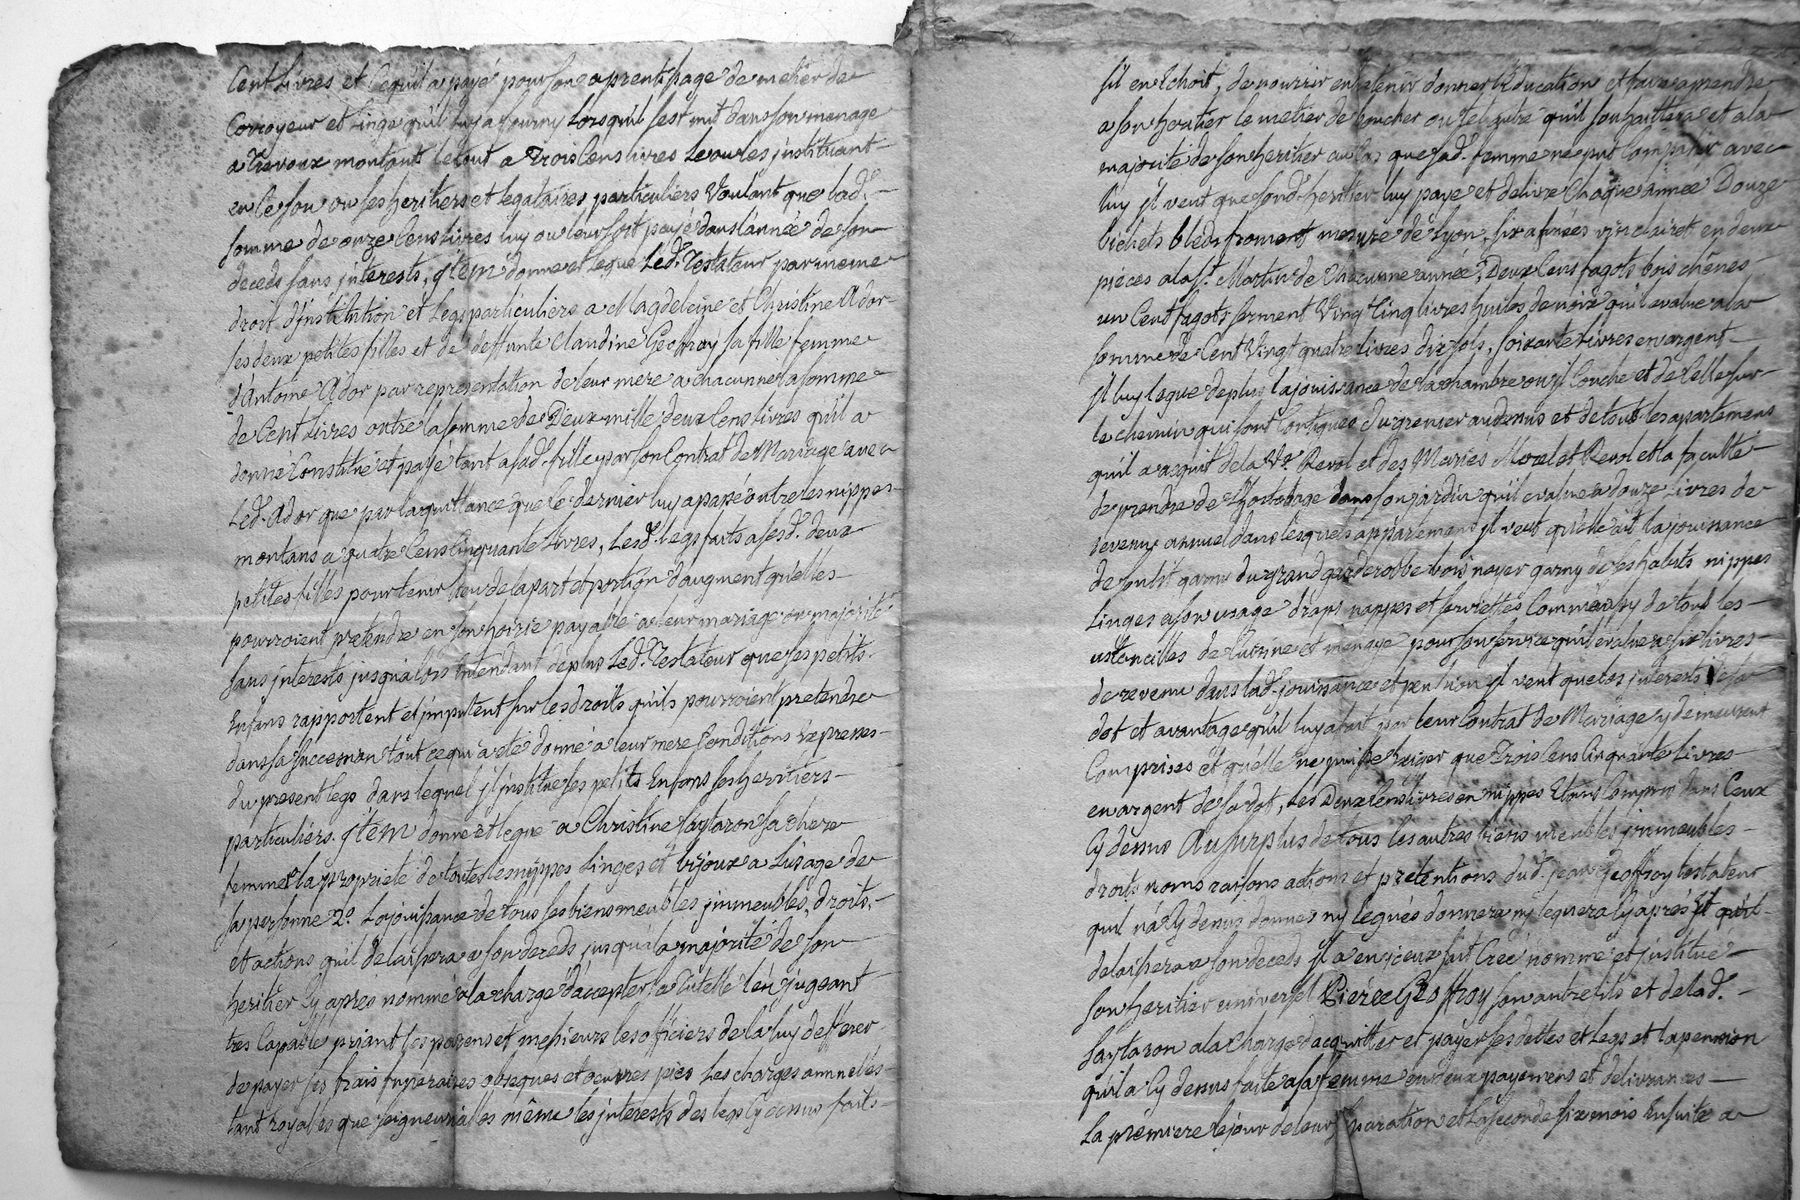 Cent Livres et Cequil a payé pour son aprentissage de metier de
Corroyeur et linge qu'il luy a fourny Lorsquil sest mit dans son menage
a Trevoux montant letout a Trois Cens livres Le ou les jnstituant
en ce son ou ses heritiers et legataires particuliers Voulant que lad.e
somme de onze Cens livres luy ou leur soit payé dans l'année de son
deceds sans jnterests, jtem donne et legue Led. Testateur par meme
droit d'jnstitution et Legs particuliers a Magdeleine et Christine Ador
ses deux petites filles et de deffunte Claudine Geoffray sa fille femme
d'Antoine Ador par representation de leur mere a chacunne la somme
de Cent Livres outre la somme de Deux mille deux Cens livres qu'il a
donné Constitué et payé tant a sad. fille par son Contrat de Mariage avec
Led. Ador que par la quittance que le dernier luy a passé outre les nippes
montans a quatre Cens Cinquante Livres, Lesd. legs faits a sesd. deux
petites filles pour tenir lieu de la part et portion d'augment qu'elles
pourroient pretendre en son hoirie payable a leur mariage ou majorité
sans jnterests jusqu'alors Entendant de plus Led. Testateur que ses petits
Enfans rapportent et jmputent sur les droits qu'ils pourroient pretendre
dans sa succession tout ce qui a eté donné a leur mere Conditions expresses
du present legs dans lequel jl jnstitue ses petits Enfans ses heritiers
particuliers. jtem donne et legue a Christine Saytaron sa chere
femme la propriete de toutes les nippes Linges et bijoux a Lusage de
sa personne 2.o La jouissance de tous ses biens meubles jmmeubles, droits,
et actions qu'il delaissera a son deceds jusqu'a la majorité de son
heritier Cy apres nommé a la charge d'accepter la Tutelle l'en jugeant
tres Capable priant ses parens et messieurs les officiers de la luy defferer
de payer ses frais funeraires obseques et oeuvres pies Les charges annuelles
tant royales que seigneurialles même les jnterests des legs Cy dessus faits
sil en Echoit, de nourrir entretenir donner Education et faire aprendre
a son heritier le metier de boucher ou tel autre qu'il souhaittera et a la
majorité de son heritier au Cas que sad. femme ne put Compatir avec
luy jl veut que sond. heritier luy paye et delivre Chaque année Douze
bichets bleds froment mesure de Lyon, six asnées vin clairet en deux
pieces a la S.t Martin de Chacunne année, Deux Cens fagots bois chênes
un Cent fagots serment Vingt Cinq livres huiles de noix qu'il evalue a la
somme de Cent Vingt quatre livres dix sols, soixante livres en argent
jl luy legue de plus la jouissance de la chambre ou jl Couche et de Celle sur
le chemin qui sont Contigues du grenier au dessus et de tout les apartemens
qu'il a acquit de la V.e Revol et des Maries Morel et Revol et la faculté
de prendre de L'hortolage dans son jardin qu'il evalue a douze Livres de
revenu annuel dans lesquels appartemens jl veut qu'elle ait la jouissance
de son lit garny du grand garderobbe bois noyer garny de ses habits nippes
Linges a son usage draps nappes et serviettes Comme aussy de tout les
ustancilles de Cuisine et menage pour son service qu'il evalue a six livres
de revenu dans lad. jouissance et pension jl veut que les jnterests de sa
dot et avantage qu'il luy a fait par leur Contrat de Mariage y demeurent
Comprises et qu'elle ne puisse Exiger que Trois Cens Cinquante Livres
en argent de sa dot, Les Deux Cens livres en nippes Etant Compris dans Ceux
Cy dessus Au surplus de tous les autres biens meubles jmmeubles
droits noms raisons actions et pretentions dud. jean Geoffroy testateur
quil n'a Cy dessus donnes ny legués donnera ny leguera Cy aprés Et qu'il
delaissera a son deceds jl a en jceux fait Creé nommé et jnstitué
son heritier universel Pierre Geoffroy son autre fils et de lad.
Saytaron a la charge d'acquitter et payer ses dettes et Legs et la pension
qu'il a Cy dessus faite a sa femme en deux payemens et delivrances
La premiere le jour de leur separation et La seconde six mois Ensuite a